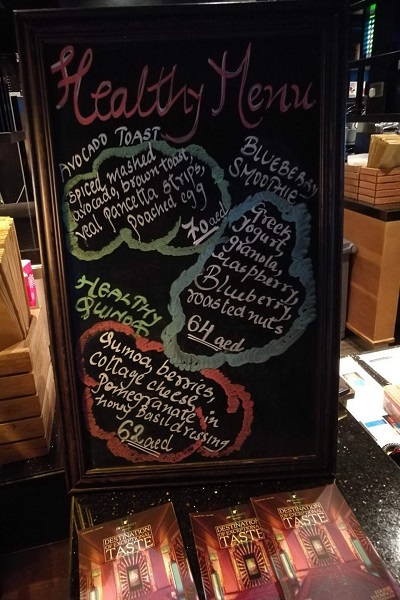 Healthy Menu
AVOCADO TOAST
spiced mashed
avocado, brown toast,
veal pancetta strips,
poached egg
70 aed
BLUEBERRY
SMOOTHIE
Greek
yogurt,
granola,
raspberry,
Blueberry,
roasted nuts
64 aed
HEALTHY
QUINOA
Quinoa, berries,
cottage cheese,
Pomegranate in
Honey Basil dressing
62 aed
DESTINATION
TASTE
DESTINATION
TASTE
DESTINATION
TASTE